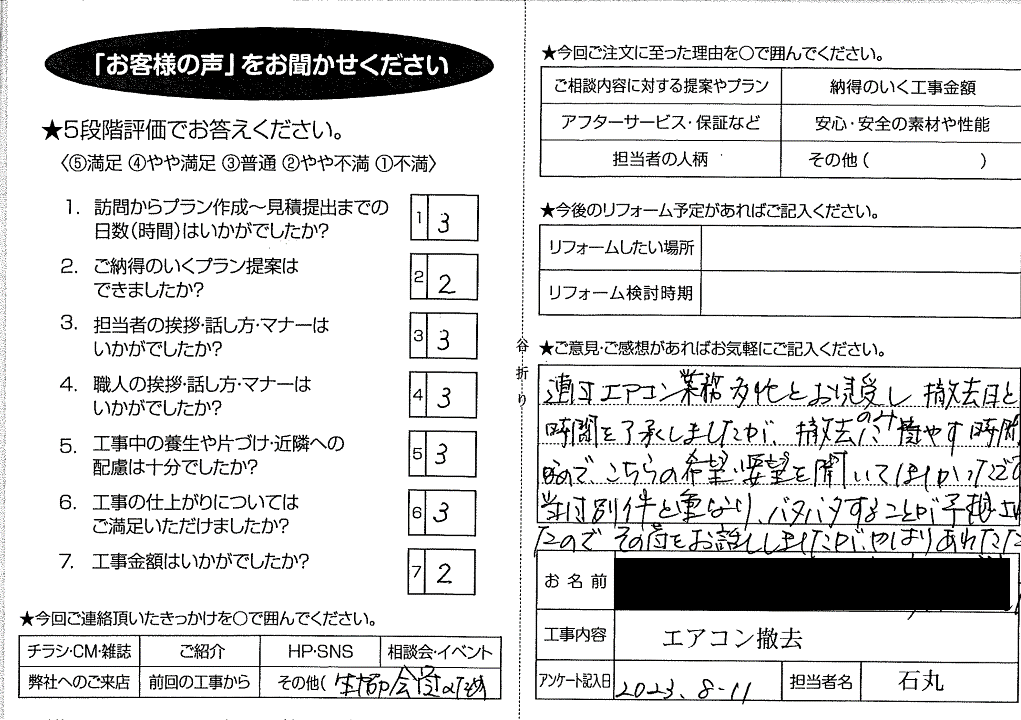 「お客様の声」をお聞かせください
★5段階評価でお答えください。
〈⑤満足 ④やや満足 ③普通 ②やや不満 ①不満〉
1. 訪問からプラン作成～見積提出までの
日数(時間)はいかがでしたか?
1 3
2. ご納得のいくプラン提案は
できましたか?
2 2
3. 担当者の挨拶・話し方・マナーは
いかがでしたか?
3 3
4. 職人の挨拶・話し方・マナーは
いかがでしたか?
4 3
5. 工事中の養生や片づけ・近隣への
配慮は十分でしたか?
5 3
6. 工事の仕上がりについては
ご満足いただけましたか?
6 3
7. 工事金額はいかがでしたか?
7 2
★今回ご連絡頂いたきっかけを○で囲んでください。
チラシ・CM・雑誌 ご紹介 HP・SNS 相談会・イベント
弊社へのご来店 前回の工事から その他(
谷折り
★今回ご注文に至った理由を○で囲んでください。
ご相談内容に対する提案やプラン 納得のいく工事金額
アフターサービス・保証など 安心・安全の素材や性能
担当者の人柄 その他( )
★今後のリフォーム予定があればご記入ください。
リフォームしたい場所
リフォーム検討時期
★ご意見・ご感想があればお気軽にご記入ください。
連日エアコン業務多忙とお見受し 撤去日と
時間を了承しましたが、撤去のみに費やす時間
なので、こちらの希望、要望を聞いてほしかったです
当日別件と重なり、バタバタすることが予想
たのでその旨をお話ししましたが、やはりあわただ
お名前
工事内容 エアコン撤去
アンケート記入日 2023. 8-11 担当者名 石丸